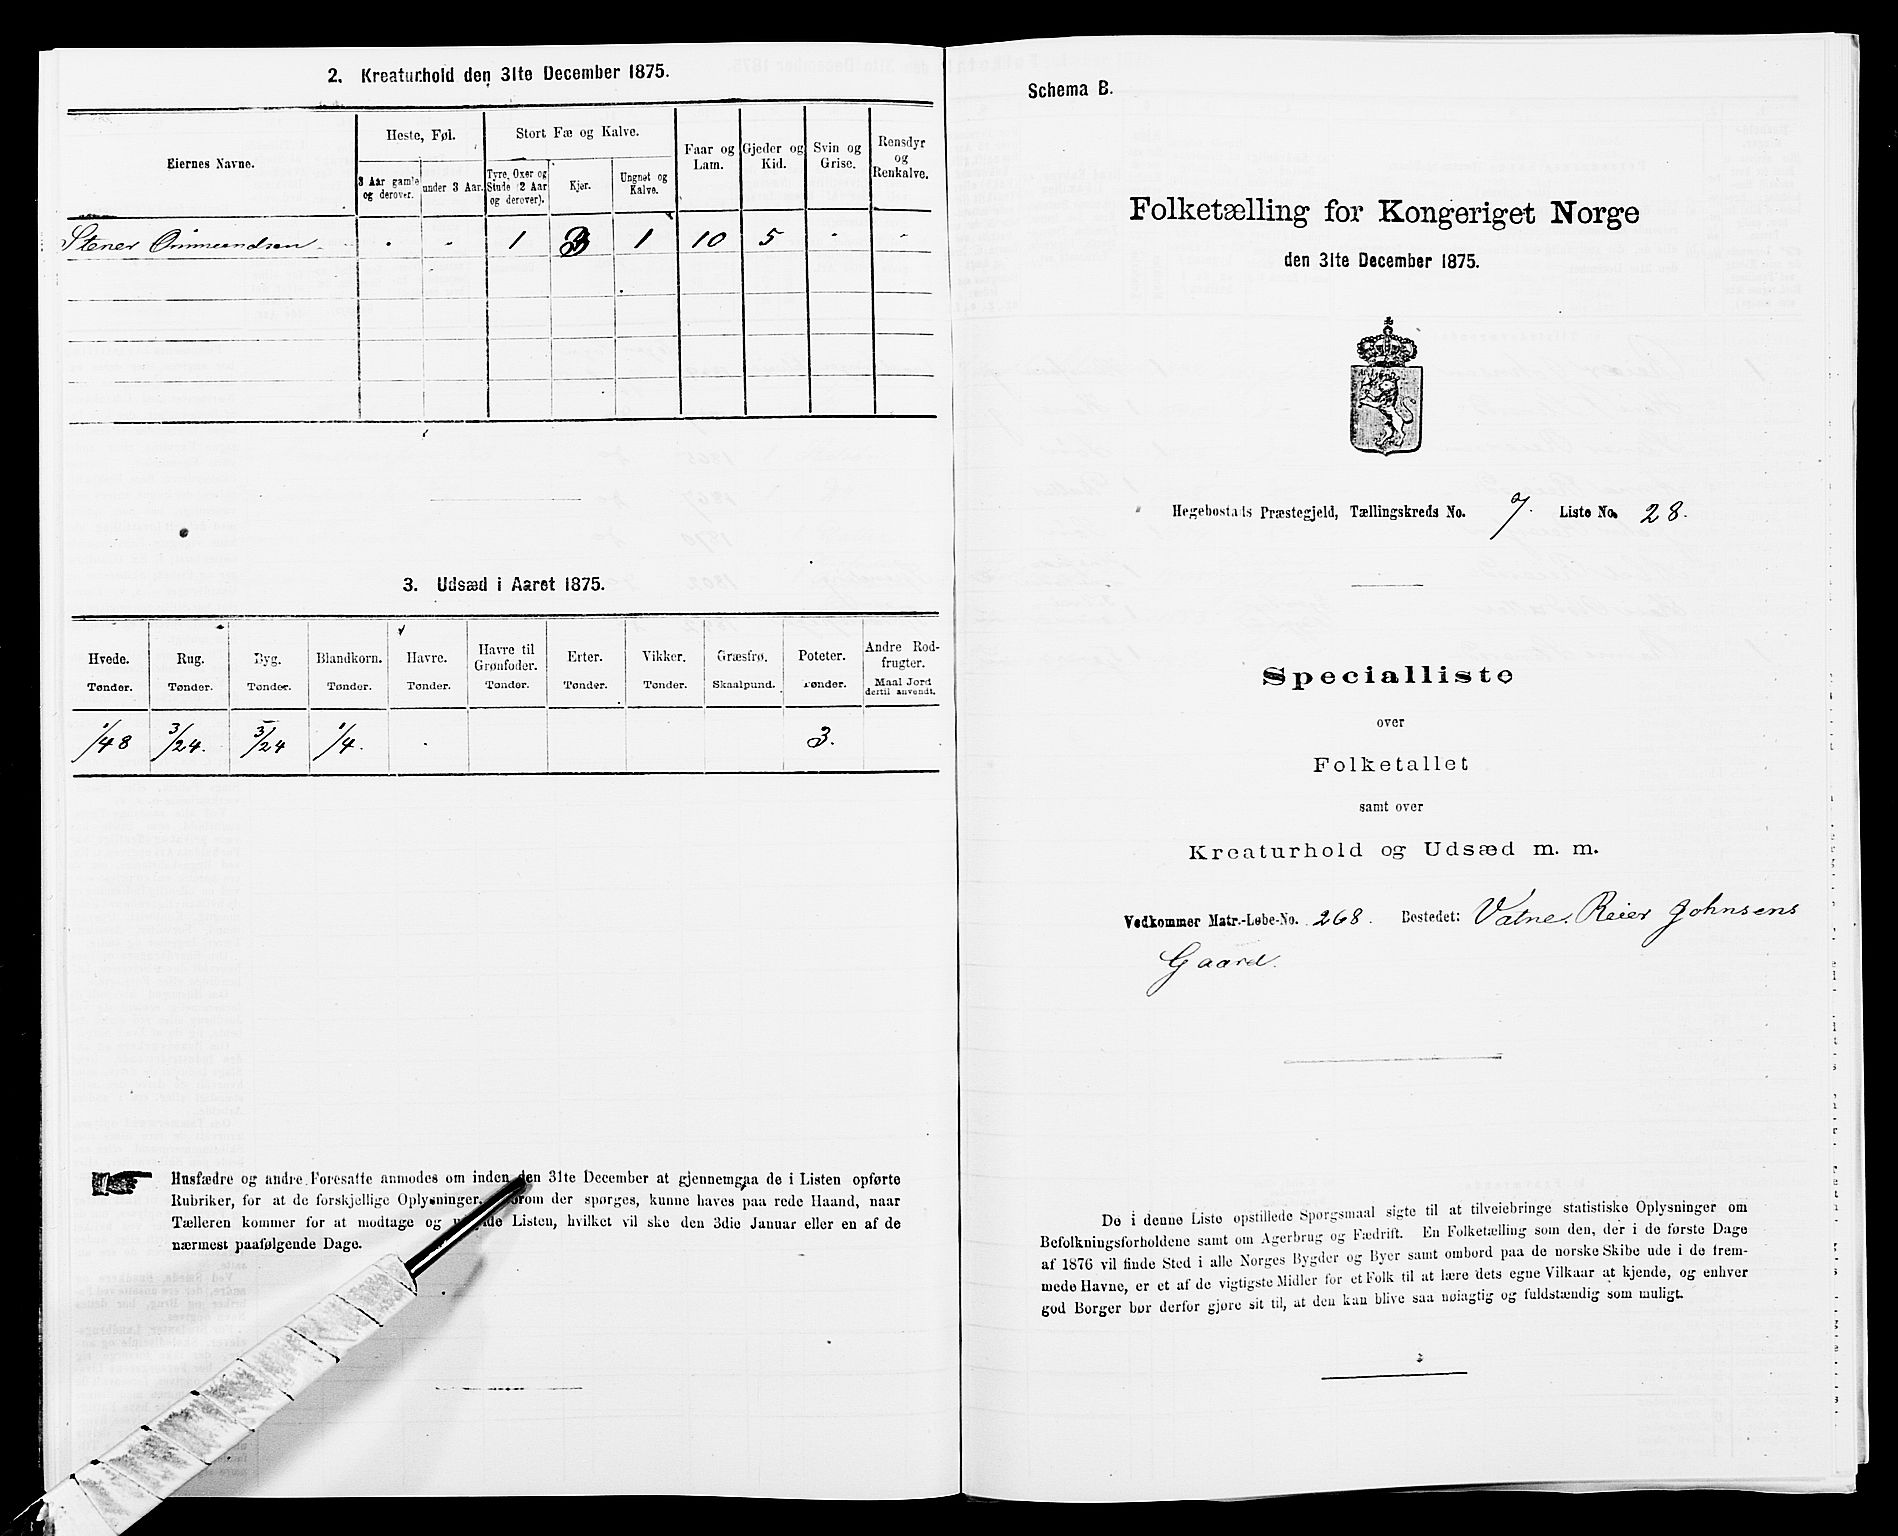 2. Kreaturhold den 31te December 1875.
Eiernes Navne.
Heste, Føl.
Stort Fæ og Kalve.
Faar og Lam.
Gjeder og Kid.
Svin og Grise.
Rensdyr og Renkalve.
3 Aar gamle og derover.
under 3 Aar.
Tyre, Oxer og Stude (2 Aar og derover).
Kjør.
Ungnøt og Kalve.
Stener Ommundsen 1 3 1 10 5
3. Udsæd i Aaret 1875.
Hvede. Rug. Byg. Blandkorn. Havre. Havre til Grønfoder. Erter. Vikker. Græsfrø. Poteter. Andre Rodfrugter.
Tønder. Tønder. Tønder. Tønder. Tønder. Tønder. Tønder. Tønder. Skaalpund. Tønder. Maal Jord dertil anvendt.
1/48 3/24. 3/24 1/4. 3.
Husfædre og andre Foresatte anmodes om inden den 31te December at gjennemgaa de i Listen opførte
Rubriker, for at de forskjellige Oplysninger, hvorom der spørges, kunne haves paa rede Haand, naar
Tælleren kommer for at modtage og udfylde Listen, hvilket vil ske den 3die Januar eller en af de
nærmest paafølgende Dage.
Schema B.
Folketælling for Kongeriget Norge
den 31te December 1875.
Hegebostads Præstegjeld, Tællingskreds No. 7. Liste No. 28.
Specialliste
over
Folketallet
samt over
Kreaturhold og Udsæd m. m.
Vedkommer Matr.-Løbe-No. 268. Bostedet: Vatne. Reier Johnsens
Gaard.
De i denne Liste opstillede Spørgsmaal sigte til at tilveiebringe statistiske Oplysninger om
Befolkningsforholdene samt om Agerbrug og Fædrift. En Folketælling som den, der i de første Dage
af 1876 vil finde Sted i alle Norges Bygder og Byer samt ombord paa de norske Skibe ude i de frem-
mede Havne, er et af de vigtigste Midler for et Folk til at lære dets egne Vilkaar at kjende, og enhver
god Borger bør derfor gjøre sit til, at den kan blive saa nøiagtig og fuldstændig som muligt.